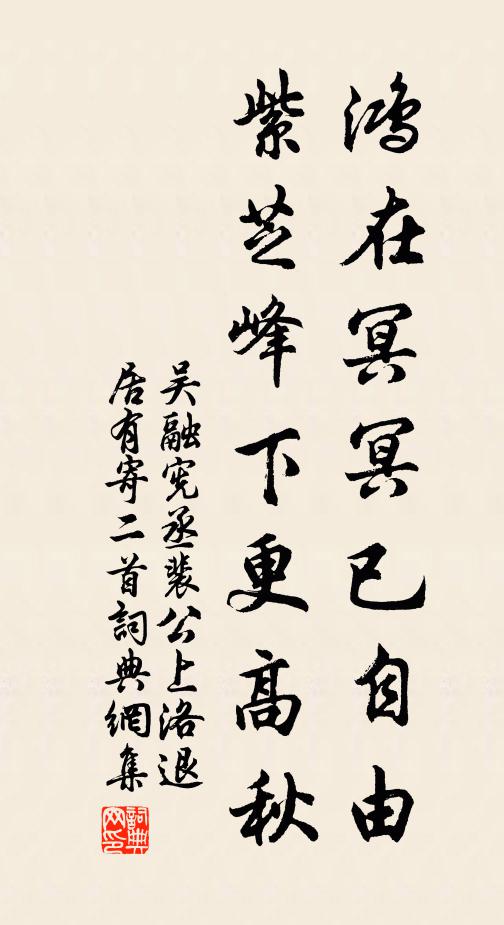 鴻在冥冥已自由
紫芝峰下更高秋
吴融宪丞裴公上洛退
居有寄二首詞典網集
詞典网印